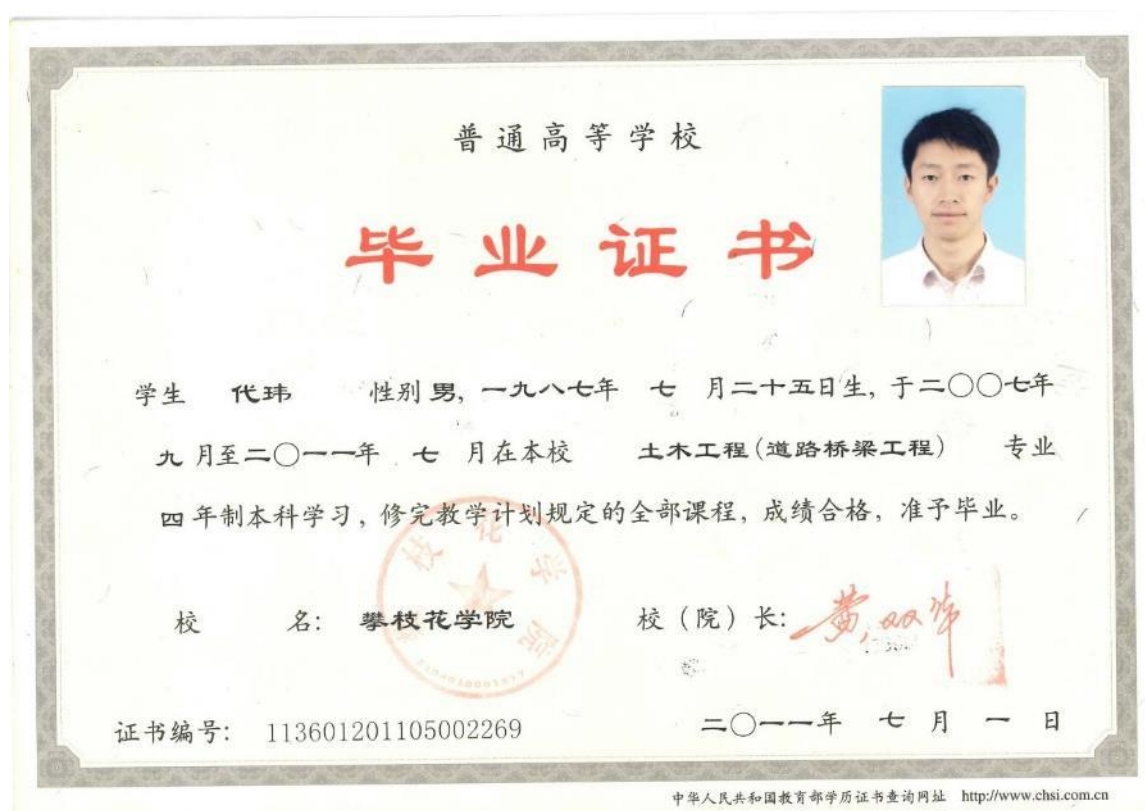 普通高等学校
毕业证书
学生 代玮 性别 男, 一九八七年 七 月二十五日生, 于二〇〇七年
九 月至二〇一一年 七 月在本校 土木工程(道路桥梁工程) 专业
四 年制本科学习, 修完教学计划规定的全部课程, 成绩合格, 准予毕业。
枝花学院
校 名: 攀枝花学院 校(院)长:
证书编号: 113601201105002269 二〇一一年 七 月 一 日
中华人民共和国教育部学历证书查询网址 http://www.chsi.com.cn